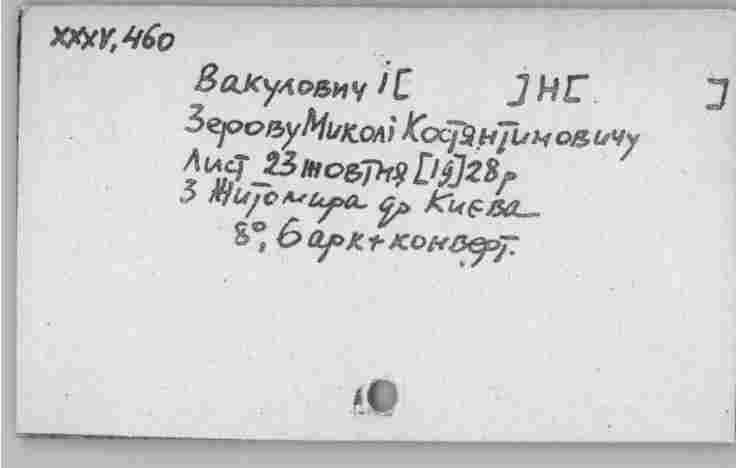 XXXV, 460
Вакулович І[ ]Н[ ]
Зерову Миколі Костянтиновичу
Лист 23 жовтня [19]28 р
З Житомира до Києва
8°, 6 арк + конверт.